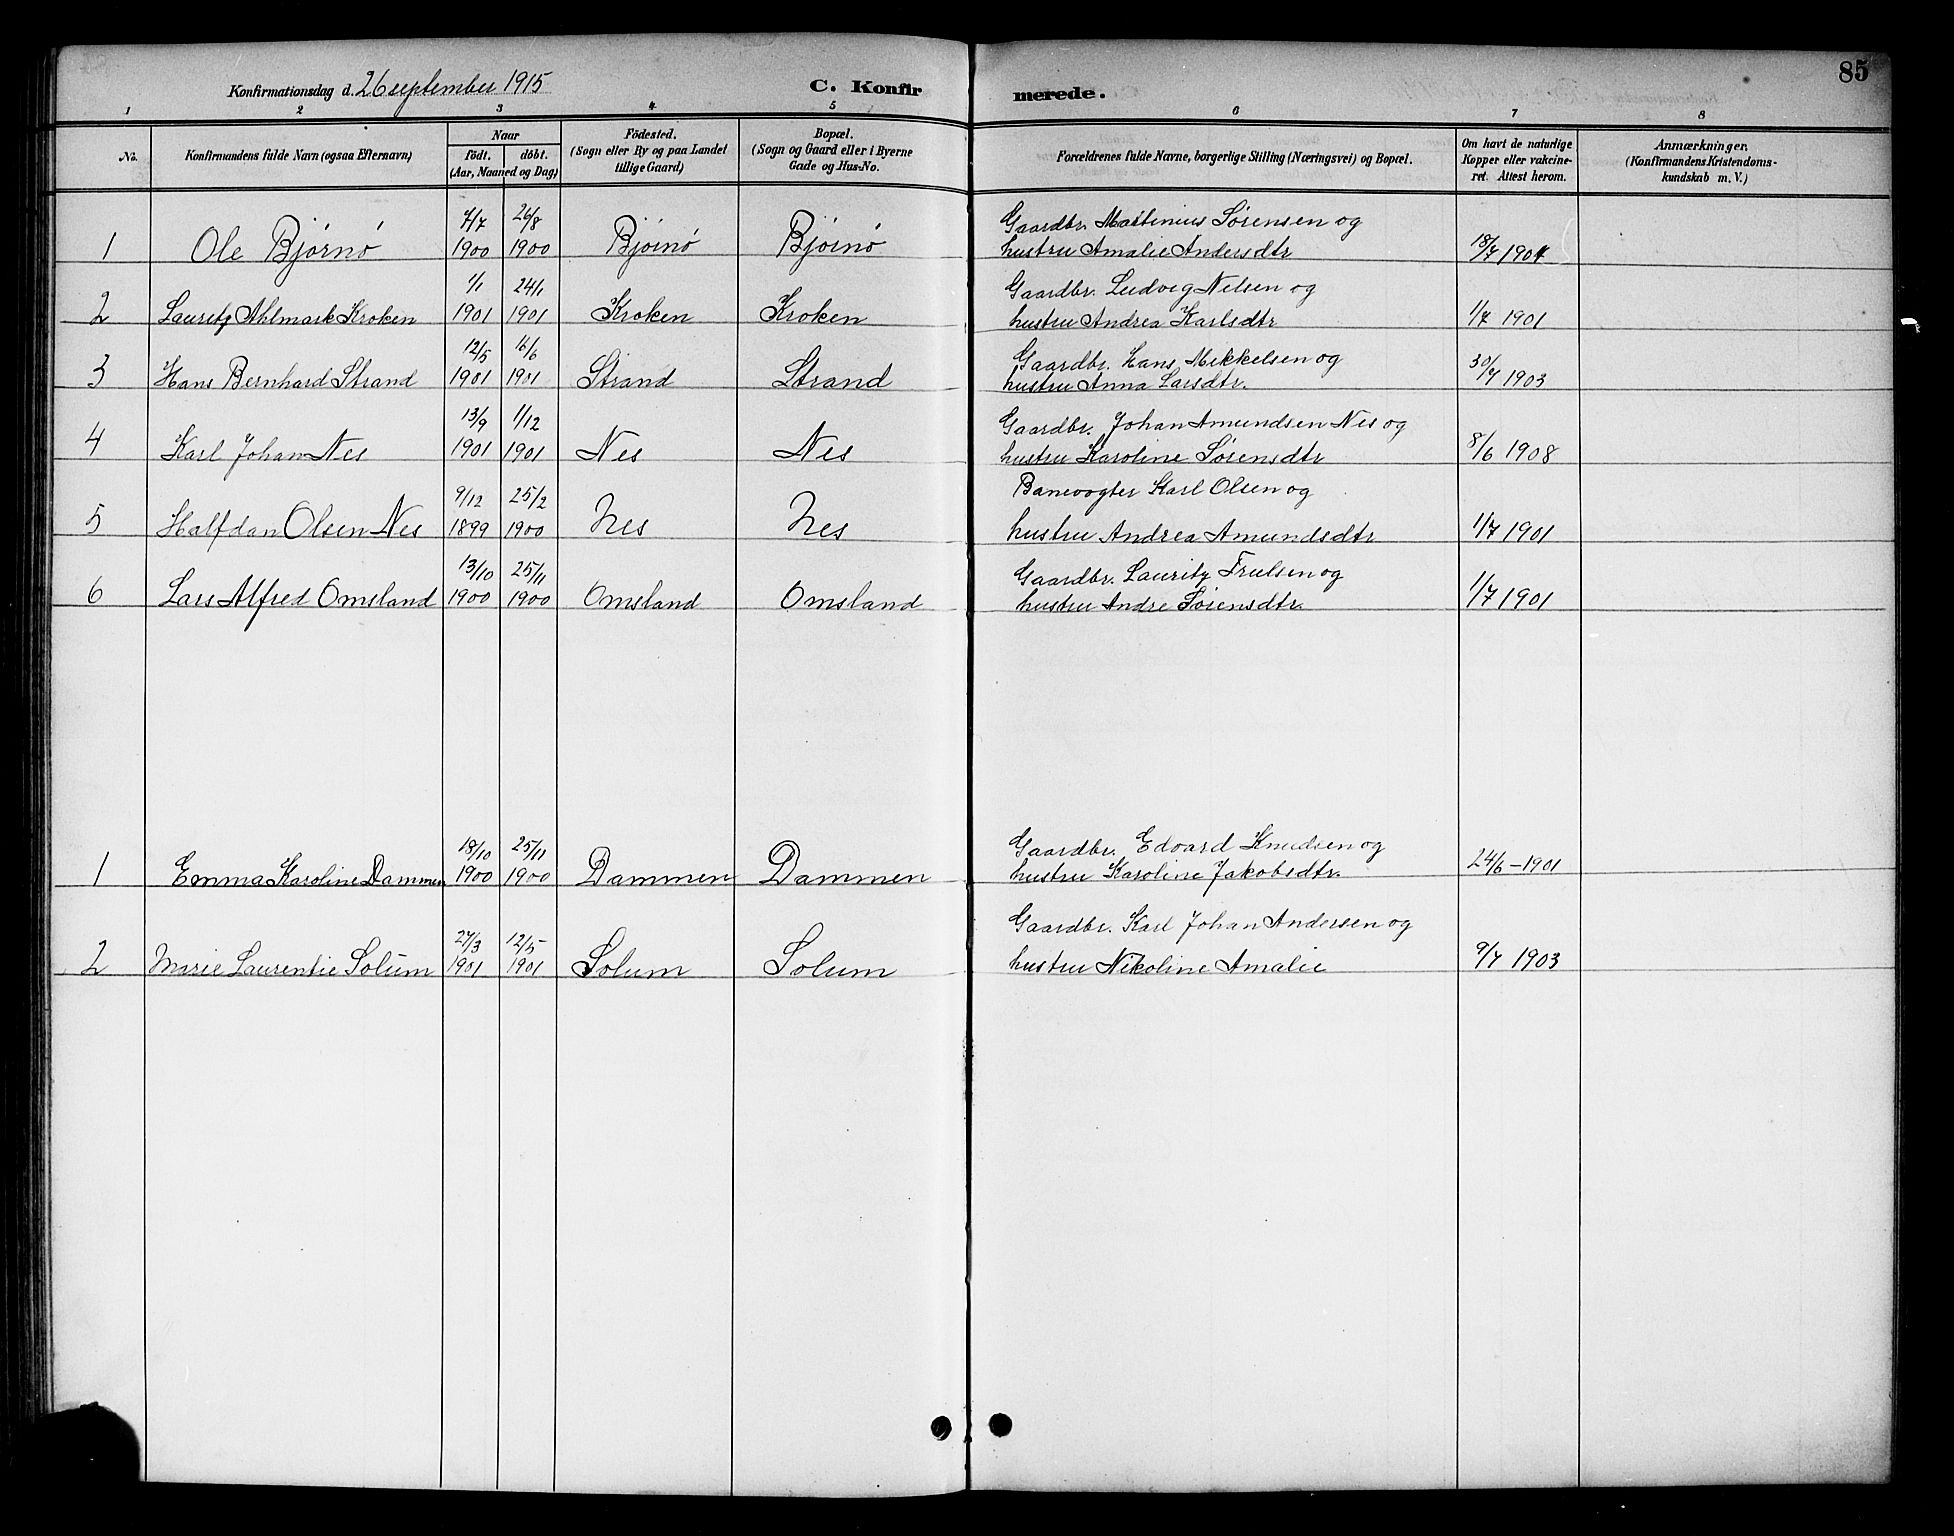 85
Konfirmationsdag d. 26 september 1915
C. Konfir
merede.
1 2 3 4 5 6 7 8
No.
Konfirmandens fulde Navn (ogsaa Efternavn)
Naar
födt. döbt.
(Aar, Maaned og Dag)
Födested.
(Sogn eller By og paa Landet
tillige Gaard)
Bopæl.
(Sogn og Gaard eller i Byerne
Gade og Hus-No.
Forældrenes fulde Navne, borgerlige Stilling (Næringsvei) og Bopæl.
Om havt de naturlige
Kopper eller vakcine-
ret. Attest herom.
Anmærkninger.
(Konfirmandens Kristendoms-
kundskab m. V.)
7/7 26/8 Gaardbr. Martinius Sørensen og
1 Ole Bjørnø 1900 1900 Bjørnø Bjørnø hustru Amalie Andersdtr 18/7 1901
1/1 24/1 Gaardbr. Ludvig Nelsen og
2 Lauritz Ahlmark Kroken 1901 1901 Kroken Kroken hustru Andrea Karlsdtr 1/7 1901
12/5 16/6 Gaardbr. Hans Mikkelsen og
3 Hans Bernhard Strand 1901 1901 Strand Strand hustru Anna Larsdtr. 30/7 1903
13/9 1/12 Gaardbr. Johan Amundsen Nes og
4 Karl Johan Nes 1901 1901 Nes Nes hustru Karoline Sørensdtr 8/6 1908
9/12 25/2 Banevogter Karl Olsen og
5 Halfdan Olsen Nes 1899 1900 Nes Nes hustru Andrea Amundsdtr 1/7 1901
13/10 25/11 Gaardbr. Lauritz Trulsen og
6 Lars Alfred Omsland 1900 1900 Omsland Omsland hustru Andre Sørensdtr. 1/7 1901
18/10 25/11 Gaardbr. Edvard Knudsen og
1 Emma Karoline Dammen 1900 1900 Dammen Dammen hustru Karoline Jakobsdtr. 24/6 - 1901
27/3 12/5 Gaardbr. Karl Johan Andersen og
2 Marie Laurentie Solum 1901 1901 Solum Solum hustru Nikoline Amalie 9/7 1903